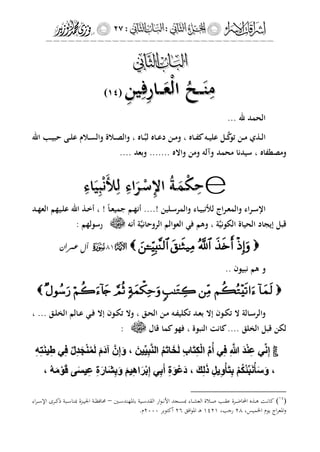 إشراقات الإسراء الجزء الثانى : الباب الثانى : ٢٧
الباب الثانى
مِنَـحُ الْعَـارِفِينِ (١٤)
الحمد لله ...
الـذي مـن توكَّـل عليـه كفـاه ، ومـن دعـاه لبَّـاه ، والصـلاة والسـلام علـى حبيـب الله
ومصطفاه ، سيدنا محمد وآله ومن والاه ....... وبعد ....
حِكْمَةُ الْإِسْرَاءِ لِلأَنْبِيَاءِ
الإسـراء والمعـراج للأنبيـاء والمرسـلين ....! أنهـم جميعـاً ! ، أخـذ الله علـيهم العهـد
قبل إيجاد الحياة الكونيَّة ، وهم في العوالم الروحانيَّة أنه رسولهم :
﴿ وَإِذْ أَخَذَ ٱللَّهُ مِيثَـٰقَ ٱلنَّبِيِّـۧنَ ﴾ ٨١ آل عمران
و هم نبيون ..
﴿ لَمَآ ءَاتَيْتُكُم مِّن كِتَـٰبٍ وَحِكْمَةٍ ثُمَّ جَآءَكُمْ رَسُولٌ ﴾
والرسالة لا تكون إلا بعد تكليفه من الحق ، ولا تكـون إلا فـي عـالم الخلـق ... ،
لكن قبل الخلق ....كانت النبوة ، فهو كما قال :
إِنِّي عِنْدَ اللَّهِ فِي أُمِّ الْكِتَابِ لَخَاتَمُ النَّبِيِّينَ ، وَإِنَّ آدَمَ لَمُنْجَدِلٌ فِي طِينَتِهِ
، وَسَأُنَبِّئُكُمْ بِتَأْوِيلِ ذَلِكَ ، دَعْوَةِ أَبِي إِبْرَاهِيمَ وَبِشَارَةِ عِيسَى قَوْمَهُ ،
(١٤) كانت هـذه المحاضـرة عقـب صـلاة العشـاء بمسـجد الأنـوار القدسـية بالمهندسـين – محافظـة الجيـزة بمناسـبة ذكـرى الإسـراء
والمعراج يوم الخميس، ٢٨ رجب، ١٤٢١ هـ الموافق ٢٦ أكتوبر ٢٠٠٠م.